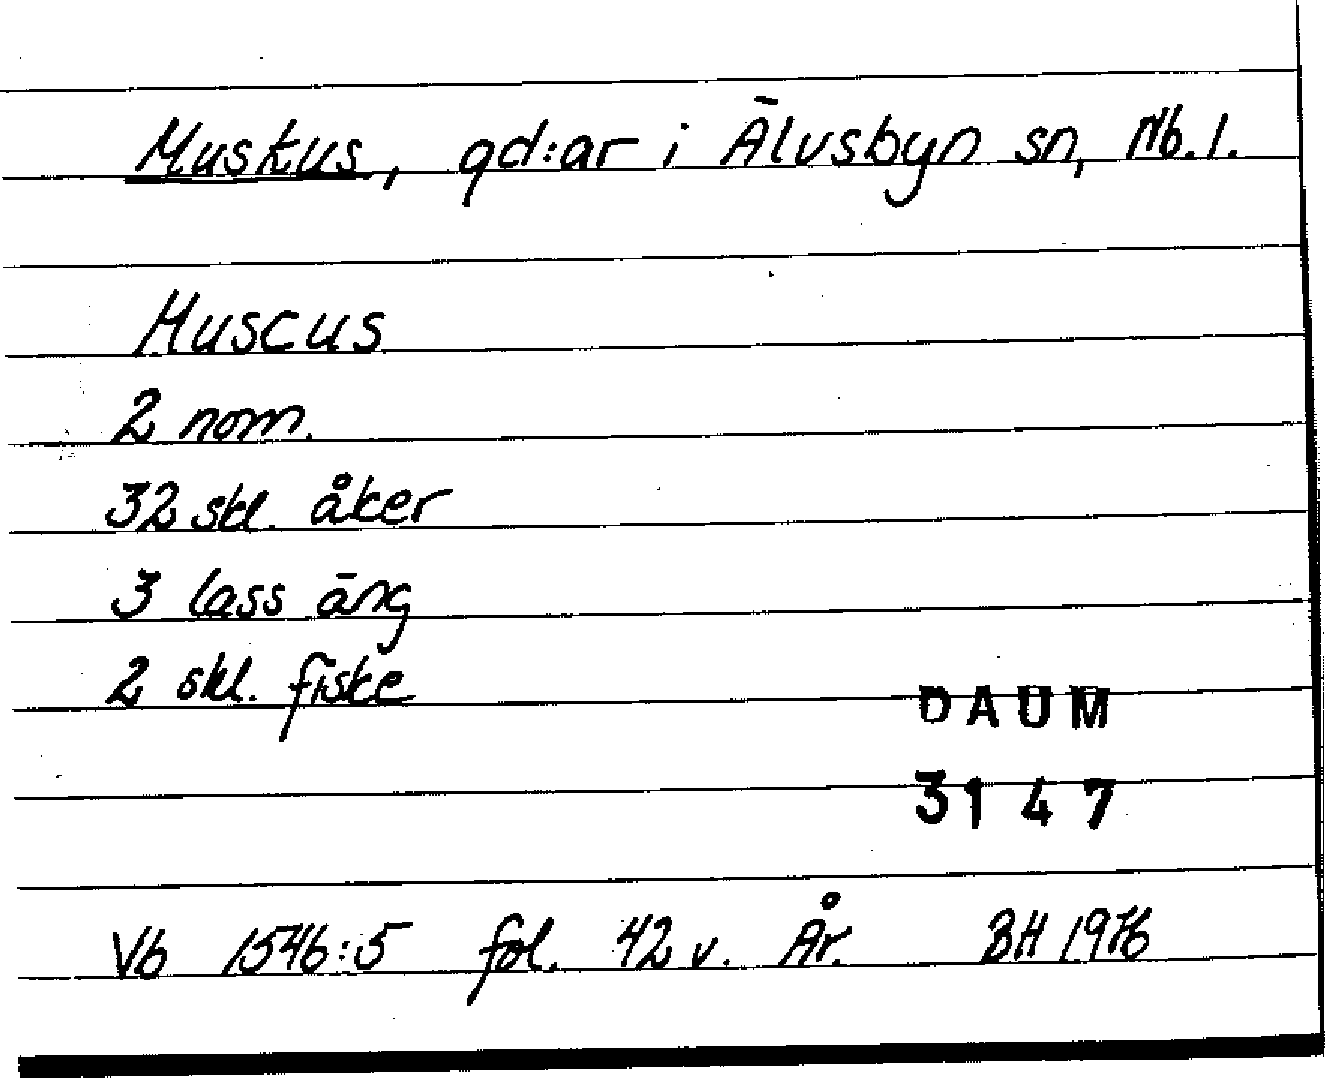 Muskus, gd:ar i Älvsbyn sn, Nb. l.
Muscus
2 nom.
32 skl. åker
3 lass äng
2 skl. fiske
DAUM
3147
Vb 1546:5 fol. 42 v. År. BH 1976